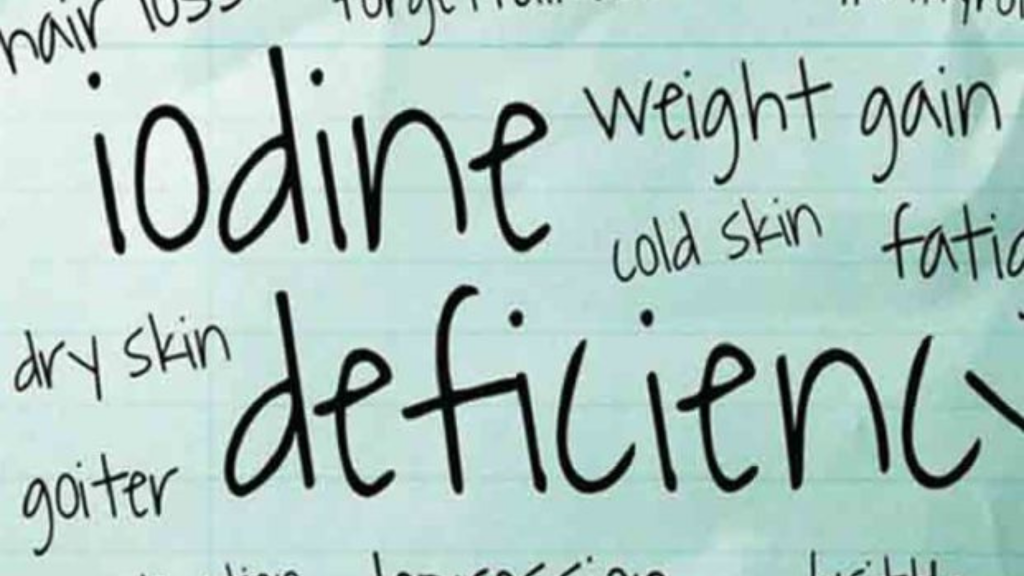 hair loss
iodine
weight gain
cold skin
dry skin
deficiency
goiter
depression